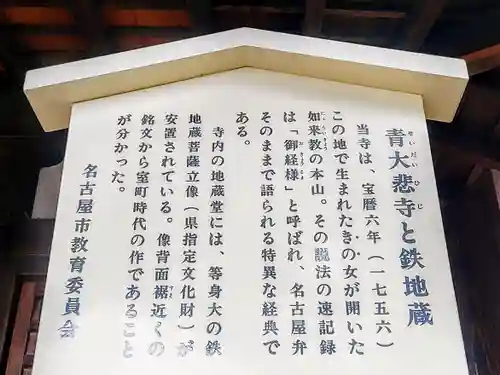 青大悲寺と鉄地蔵
せいだいひじ
当寺は、宝暦六年（一七五六）
この地で生まれたきの女が開いた
如来教の本山。その説法の速記録
にょらいきょう
は「御経様」と呼ばれ、名古屋弁
おきょうさま
そのままで語られる特異な経典で
ある。
寺内の地蔵堂には、等身大の鉄
地蔵菩薩立像（県指定文化財）が
安置されている。像背面裾近くの
すそ
銘文から室町時代の作であること
が分かった。
名古屋市教育委員会